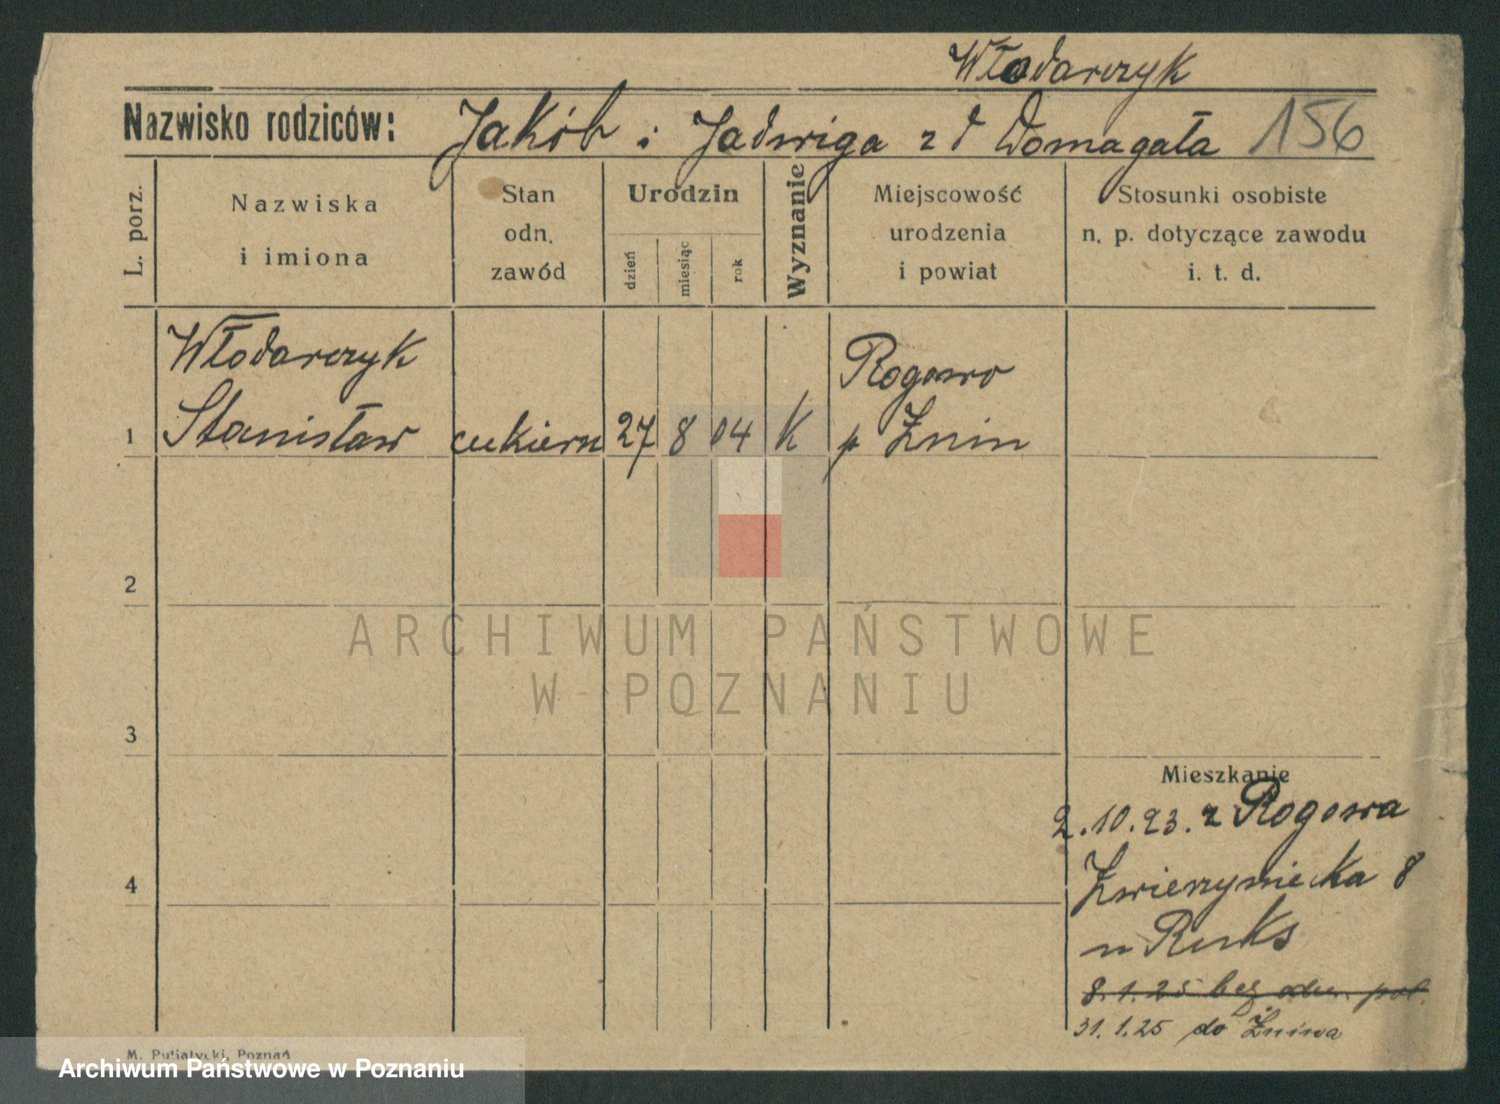 Włodarczyk
Nazwisko rodziców: Jakób i Jadwiga z d Domagała 156
L. porz.
Nazwiska
i imiona
Stan
odn.
zawód
Urodzin
dzień
miesiąc
rok
Wyznanie
Miejscowość
urodzenia
i powiat
Stosunki osobiste
n. p. dotyczące zawodu
i. t. d.
Włodarczyk
Rogowo
1 Stanisław cukiern 27 8 04 K p Żnin
2
ARCHIWUM PAŃSTWOWE
W POZNANIU
3
Mieszkanie
2.10.23. z Rogowa
4
Zwierzyniecka 8
u Ruks
8.1.25 bez odm. pol.
31.1.25 do Żnina
M. Putiatycki, Poznań
Archiwum Państwowe w Poznaniu